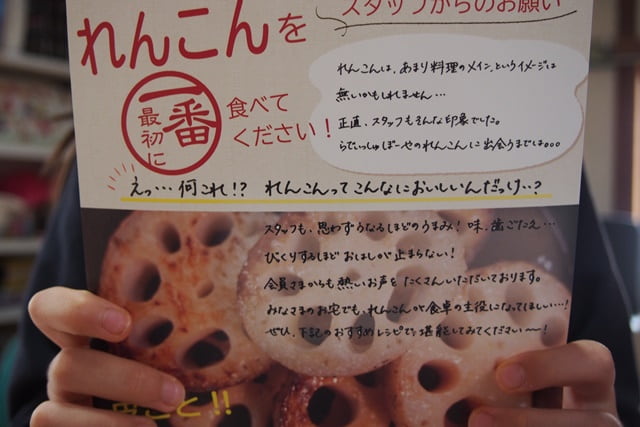 スタッフからのお願い
れんこんを
一番
最初に
食べて
ください!
れんこんは、あまり料理のメイン、というイメージは
無いかもしれません…
正直、スタッフもそんな印象でした。
らでぃっしゅぼーやのれんこんに出会うまでは。。。
えっ…何これ!? れんこんってこんなにおいしいんだっけ…?
スタッフも、思わずうなるしほどのうまみ!味、歯ごたえ…
びっくりするほどおはしが止まらない!
会員さまからも熱いお声をたくさんいただいております。
みなさまのお宅でも、れんこんが食卓の主役になってほしい…!
ぜひ、下記のおすすめレシピで、堪能してみてください〜!
ごと!!